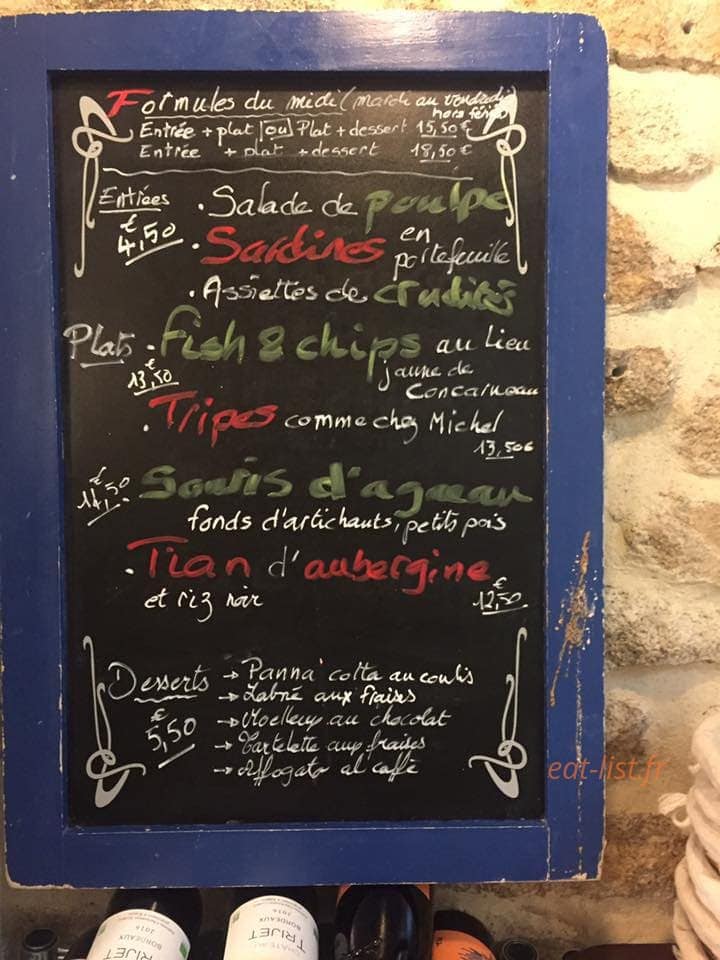 Formules du midi (mardi au vendredi
hors fériés
Entrée + plat ou Plat + dessert 15,50 €
Entrée + plat + dessert 18,50 €
Entrées
€
4,50
• Salade de poulpe
• Sardines en
portefeuille
• Assiettes de crudités
Plats
€
13,50
• Fish & chips au lieu
jaune de
Concarneau
• Tripes comme chez Michel
13,50€
€
14,50
Souris d'agneau
fonds d'artichauts, petits pois
• Tian d'aubergine
et riz noir
€
12,50
Desserts
€
5,50
→ Panna cotta au coulis
→ Labné aux fraises
→ Moelleux au chocolat
→ Tartelette aux fraises
→ Affogato al caffè
eat-list.fr
TRIJET
BORDEAUX
2016
CHÂTEAU
TRIJET
BORDEAUX
2016
2016